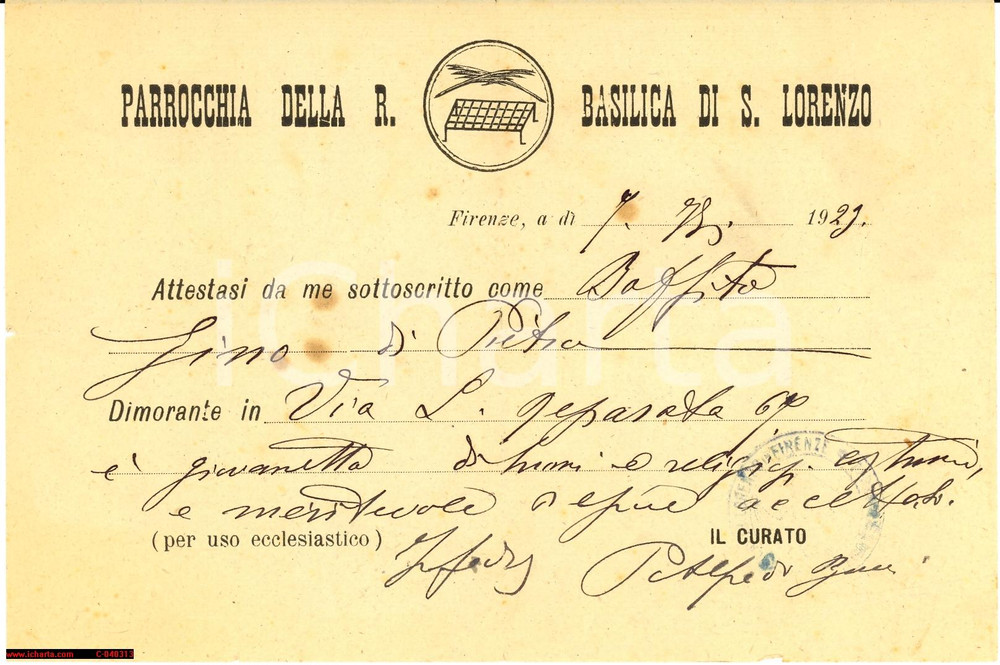 PARROCCHIA DELLA R. BASILICA DI S. LORENZO
Firenze, a dì 7. 1923.
Attestasi da me sottoscritto come Boffito
Gino di Pietro
Dimorante in Via S. Reparata 69
è giovanetto di buoni e religiosi costumi,
e meritevole d'essere accettato.
(per uso ecclesiastico)
In fede
IL CURATO
P. Alfredo
FIRENZE
iCharta
www.icharta.com C-040313